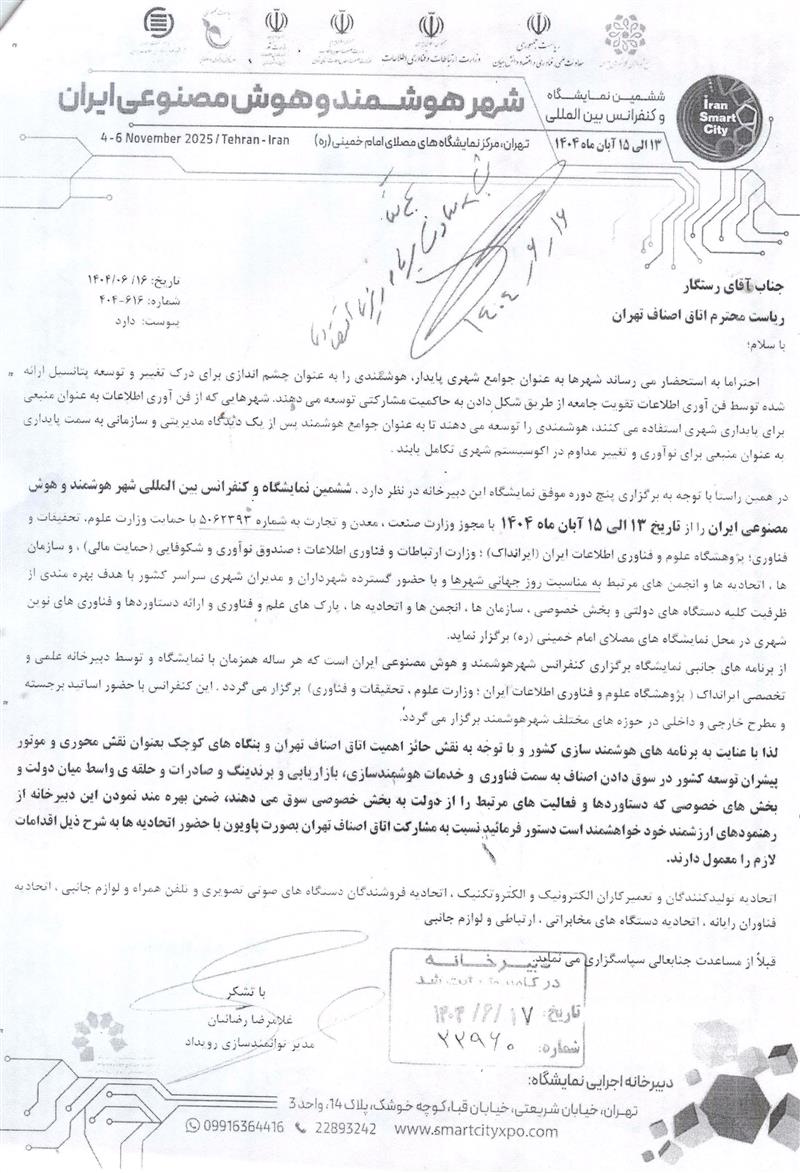 ریاست جمهوری
معاونت علمی، فناوری و اقتصاد دانش بنیان
وزارت ارتباطات و فناوری اطلاعات
ششمین نمایشگاه
و کنفرانس بین المللی
شهر هوشمند و هوش مصنوعی ایران
Iran
Smart
City
۱۳ الی ۱۵ آبان ماه ۱۴۰۴
تهران، مرکز نمایشگاه های مصلای امام خمینی (ره)
4 - 6 November 2025 / Tehran - Iran
۱۴۰۴/۶/۱۶
تاریخ: ۱۶/ ۱۴۰۴/۰۶
شماره: ۶۱۶-۴۰۴
پیوست: دارد
جناب آقای رستگار
ریاست محترم اتاق اصناف تهران
با سلام؛
احتراما به استحضار می رساند شهرها به عنوان جوامع شهری پایدار، هوشمندی را به عنوان چشم اندازی برای درک تغییر و توسعه پتانسیل ارائه
شده توسط فن آوری اطلاعات تقویت جامعه از طریق شکل دادن به حاکمیت مشارکتی توسعه می دهند. شهرهایی که از فن آوری اطلاعات به عنوان منبعی
برای پایداری شهری استفاده می کنند، هوشمندی را توسعه می دهند تا به عنوان جوامع هوشمند پس از یک دیدگاه مدیریتی و سازمانی به سمت پایداری
به عنوان منبعی برای نوآوری و تغییر مداوم در اکوسیستم شهری تکامل یابند .
در همین راستا با توجه به برگزاری پنج دوره موفق نمایشگاه این دبیرخانه در نظر دارد ، ششمین نمایشگاه و کنفرانس بین المللی شهر هوشمند و هوش
مصنوعی ایران را از تاریخ ۱۳ الی ۱۵ آبان ماه ۱۴۰۴ با مجوز وزارت صنعت ، معدن و تجارت به شماره ۵۰۶۲۳۹۳ با حمایت وزارت علوم، تحقیقات و
فناوری؛ پژوهشگاه علوم و فناوری اطلاعات ایران (ایرانداک) ؛ وزارت ارتباطات و فناوری اطلاعات ؛ صندوق نوآوری و شکوفایی (حمایت مالی) ، و سازمان
ها ، اتحادیه ها و انجمن های مرتبط به مناسبت روز جهانی شهرها و با حضور گسترده شهرداران و مدیران شهری سراسر کشور با هدف بهره مندی از
ظرفیت کلیه دستگاه های دولتی و بخش خصوصی ، سازمان ها ، انجمن ها و اتحادیه ها ، پارک های علم و فناوری و ارائه دستاوردها و فناوری های نوین
شهری در محل نمایشگاه های مصلای امام خمینی (ره) برگزار نماید.
از برنامه های جانبی نمایشگاه برگزاری کنفرانس شهرهوشمند و هوش مصنوعی ایران است که هر ساله همزمان با نمایشگاه و توسط دبیرخانه علمی و
تخصصی ایرانداک ( پژوهشگاه علوم و فناوری اطلاعات ایران ؛ وزارت علوم ، تحقیقات و فناوری) برگزار می گردد . این کنفرانس با حضور اساتید برجسته
و مطرح خارجی و داخلی در حوزه های مختلف شهرهوشمند برگزار می گردد.
لذا با عنایت به برنامه های هوشمند سازی کشور و با توجه به نقش حائز اهمیت اتاق اصناف تهران و بنگاه های کوچک بعنوان نقش محوری و موتور
پیشران توسعه کشور در سوق دادن اصناف به سمت فناوری و خدمات هوشمندسازی، بازاریابی و برندینگ و صادرات و حلقه ی واسط میان دولت و
بخش های خصوصی که دستاوردها و فعالیت های مرتبط را از دولت به بخش خصوصی سوق می دهند، ضمن بهره مند نمودن این دبیرخانه از
رهنمودهای ارزشمند خود خواهشمند است دستور فرمائید نسبت به مشارکت اتاق اصناف تهران بصورت پاویون با حضور اتحادیه ها به شرح ذیل اقدامات
لازم را معمول دارند.
اتحادیه تولیدکنندگان و تعمیرکاران الکترونیک و الکتروتکنیک ، اتحادیه فروشندگان دستگاه های صوتی تصویری و تلفن همراه و لوازم جانبی ، اتحادیه
فناوران رایانه ، اتحادیه دستگاه های مخابراتی ، ارتباطی و لوازم جانبی
قبلاً از مساعدت جنابعالی سپاسگزاری می نماید.
دبیرخانه
ثبت شد
تاریخ: ۱۴۰۴/۶/۱۷
شماره: ۲۲۹۶۰
با تشکر
غلامرضا رضائیان
مدیر توانمندسازی رویداد
دبیرخانه اجرایی نمایشگاه:
تهران، خیابان شریعتی، خیابان قبا، کوچه خوشک، پلاک 14، واحد 3
09916364416 22893242 www.smartcityxpo.com